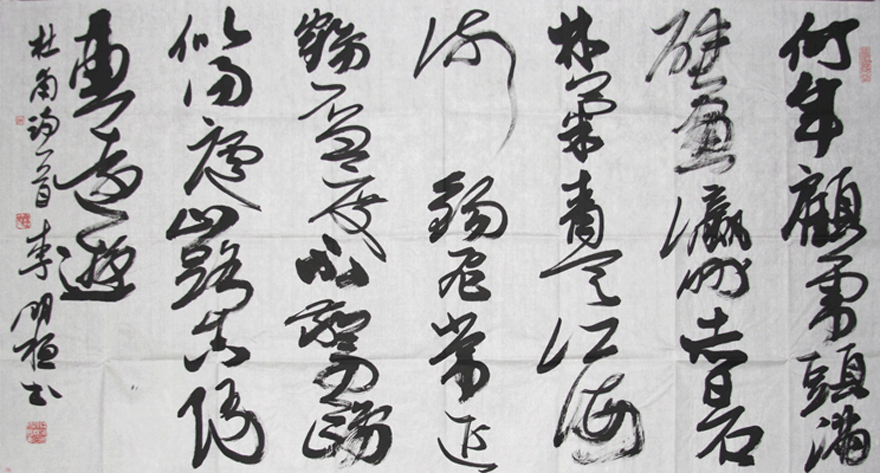 何年顧虎頭滿
壁畫瀛州赤日石
林氣青天江海
流錫飛常近
鶴盃度不驚鷗
似得廬山路真隨
惠遠遊
杜甫詩一首 李明书